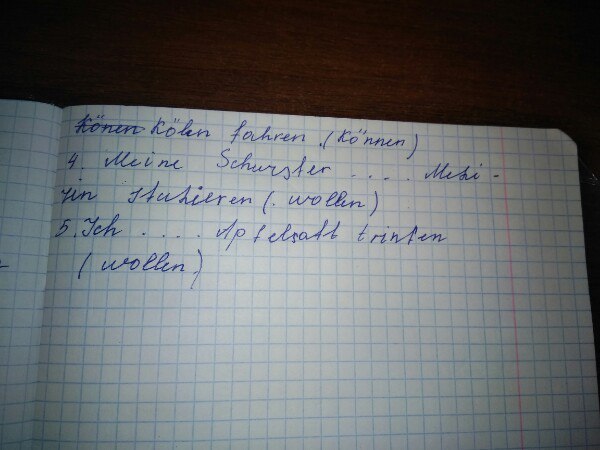 Könen Köln fahren. (können)
4. Meine Schwester .... Medi-
zin studieren (. wollen)
5. Ich .... Apfelsaft trinken
(wollen)